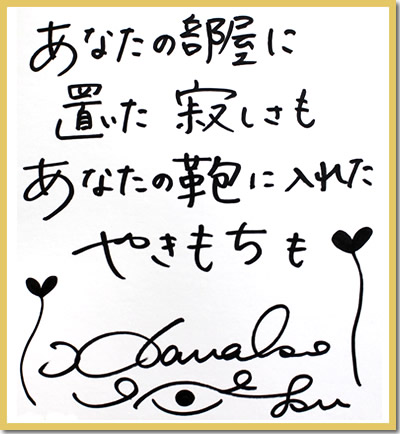 あなたの部屋に
置いた 寂しさも
あなたの鞄に入れた
やきもちも